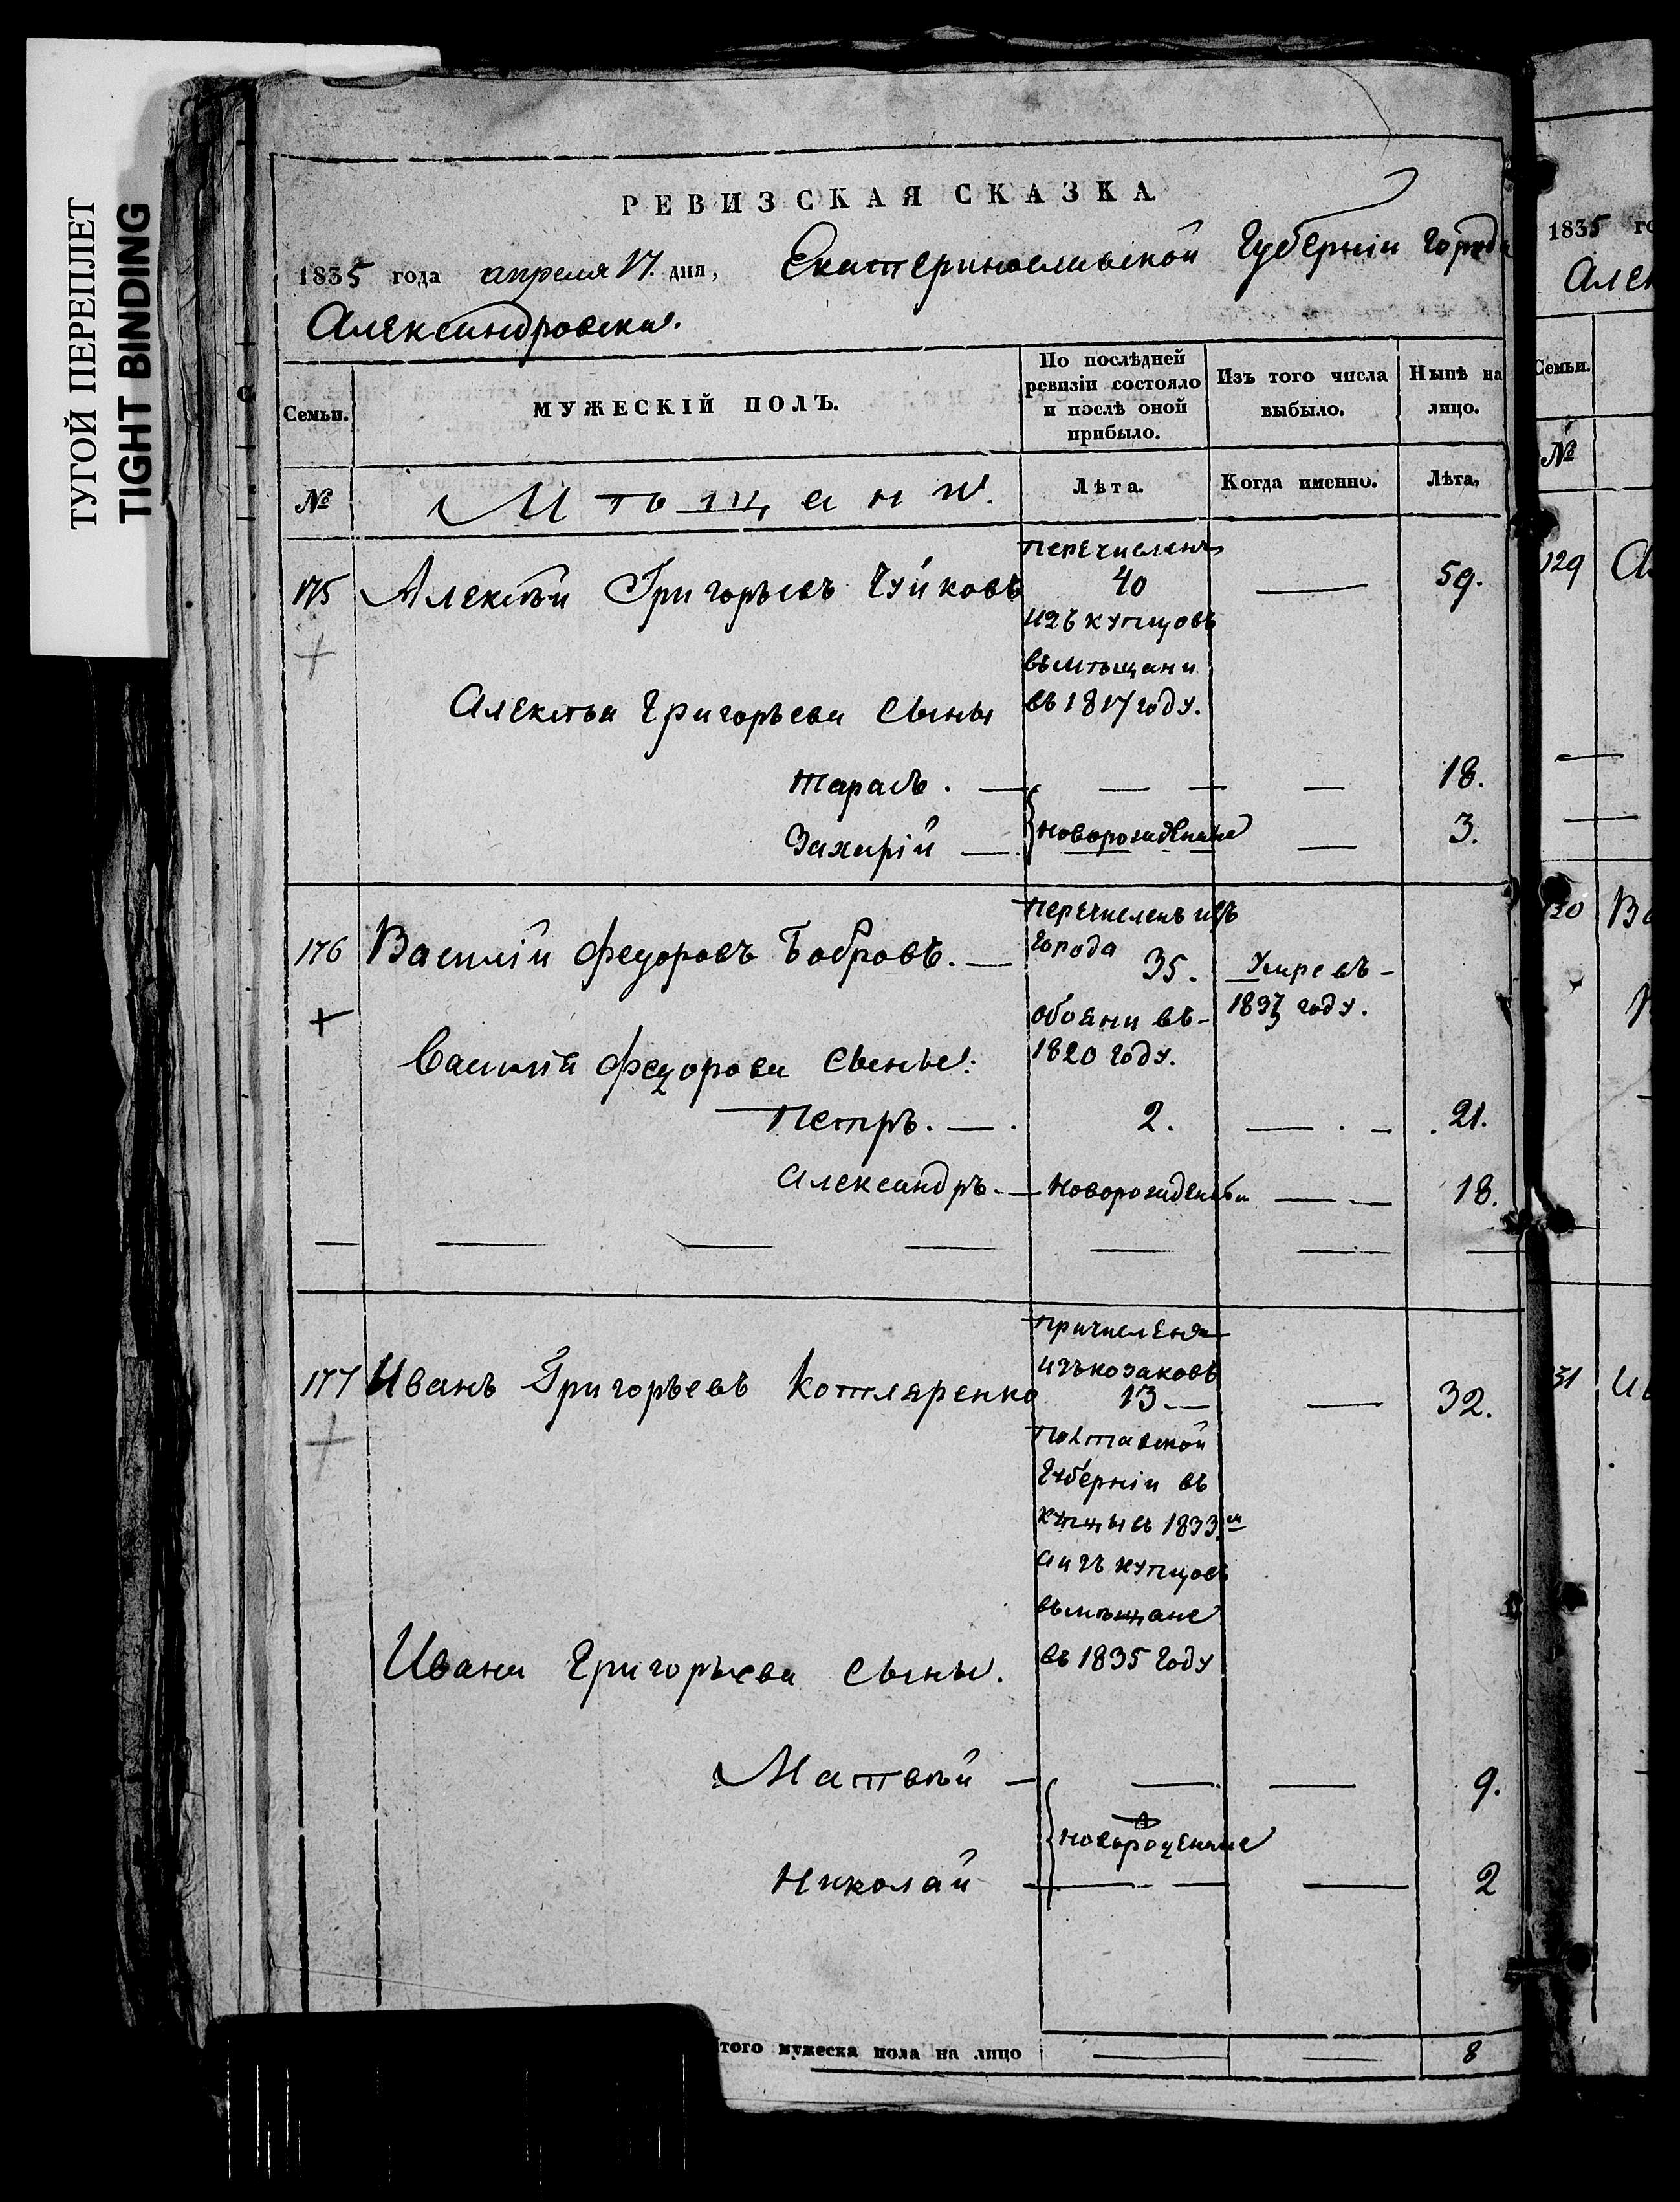 ТУГОЙ ПЕРЕПЛЕТ
TIGHT BINDING
РЕВИЗСКАЯ СКАЗКА
1835 года апреля 17. дня, Екатеринославской Губерніи города
Александровска.
Семьи.
МУЖЕСКІЙ ПОЛЪ.
По послѣдней ревизіи состояло и послѣ оной прибыло.
Изъ того числа выбыло.
Нынѣ на лицо.
№
Мѣщане.
Лѣта.
Когда именно.
Лѣта.
175 Алексѣй Григорьевъ Чуйковъ
перечисленъ
40
59.
изъ купцовъ
въ мѣщани
въ 1817 году.
Алексѣя Григорьева сыны
Тарасъ. — — — — 18.
Захарій — новорожденные — 3.
176 Василій Федоровъ Бобровъ. —
перечисленъ изъ
города 35.
обояни въ-
1820 году.
Умре въ-
году.
Василія Федорова сыны:
Петръ. — . 2. — . — . 21.
Александръ. — Новорожденный — — 18.
177 Иванъ Григорьевъ Котляренко
причисленъ
изъ козаковъ
13. — — 32.
Полтавской
Губерніи въ
купцы въ 1833м
а изъ купцовъ
въ мѣщане
въ 1835 году
Ивана Григорьева сыны.
Матвѣй — — — 9.
новорожденные
Николай — — — 2
Итого мужеска пола на лицо — — 8
1835 го
Алек
Семьи.
№
129
Ва
31